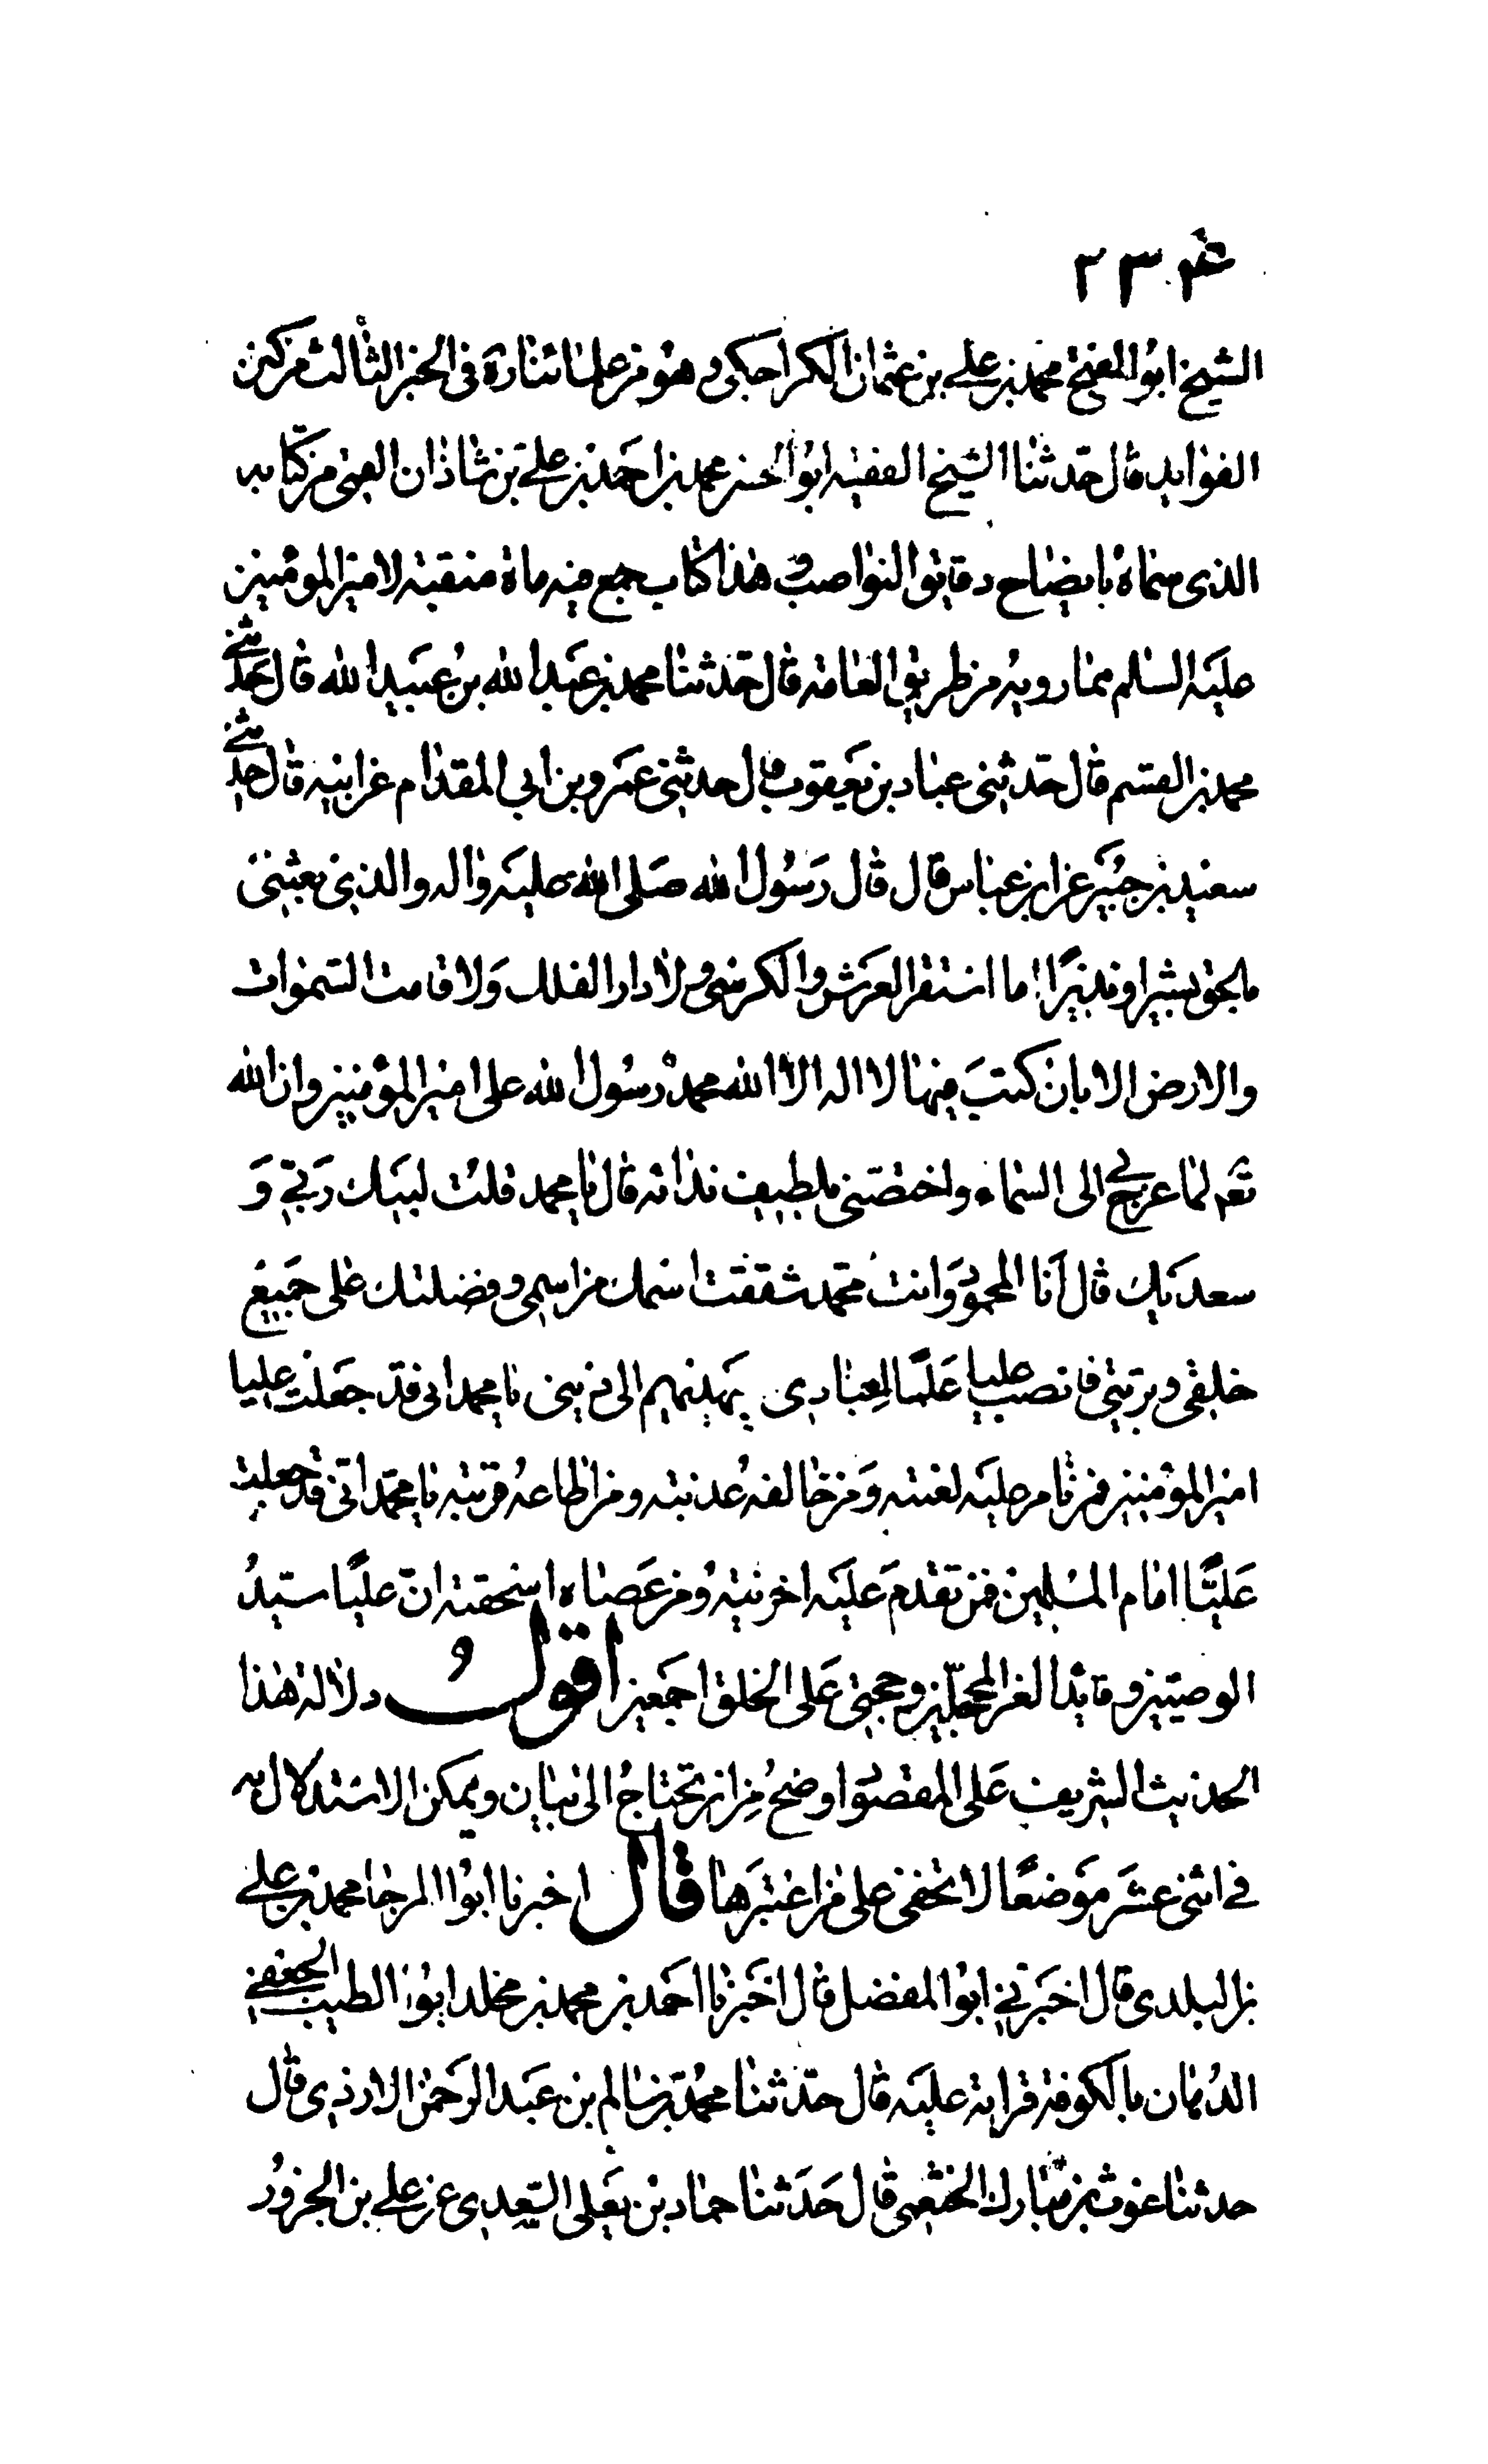 ٢٣٢
الشيخ ابو الفتح محمد بن علي بن عثمان الكراجكي و هو من علمائنا ره في الخبر الثالث من كنز
الفوايد قال حدثنا الشيخ الفقيه ابو الحسن محمد بن احمد بن علي بن شاذان القمي من كتابه
الذي سماه بايضاح دقايق النواصب و هذا كتاب جمع فيه ماة منقبة لامير المومنين
عليه السلم مما رويه من طريق العامة قال حدثنا محمد بن عبد الله بن عبيد الله قال حدثني
محمد بن القسم قال حدثني عباد بن يعقوب قال حدثني عمرو بن ابي المقدام عن ابيه قال حدثني
سعيد بن جبير عن ابن عباس قال قال رسول الله صلى الله عليه واله والذي بعثني
بالحق بشيرا و نذيرًا ما استقر العرش و الكرسي و لا دار الفلك وَلا قامت السموات
والارض الا بان كتبَ فيها لا اله الا الله محمد رسول الله على امير المؤمنين وان الله
تعم لما عرج بي الى السماء واختصني بلطيف ندائه قال يا محمد قلت لبيك ربّي وَ
سعديك قال أنا المحمود وَانت محمد شققت اسمك من اسمي وفضلتك على جميع
خلقي و بريتي فانصب عليا عَلَمًا لعبادي يهديهم الى ديني يا محمد اني قد جعلت عليا
امير المؤمنين فمن تامر عليه لعنته وَمن خالفه عذبته ومن اطاعه قربته يا محمد اني قد جعلت
عَليًّا امام المسلمين فمن تقدم عَليه اخزيته ومن عَصاه اسحقته ان عليًا سيد
الوصيين و قايد الغر المحجلين و حجتي عَلى الخلق اجمعين اقول و دلالة هذا
الحديث الشريف عَلى المقصود اوضح مِن ان تحتاج الى بيان ويمكن الاستدلال به
في اثني عشر موضعًا لا تخفى على من اعتبرها قال اخبرنا ابو الرجا محمد بن علي
بن البلدي قال اخبرني ابو المفضل قال اخبرنا احمد بن محمد بن مخلد ابو الطيب الجعفي
الدهان بالكوفة قراءة عليه قال حدثنا محمد بن سالم بن عبد الرحمن الازدي قال
حدثنا غوث بن مبارك الخثعمي قال حَدَثنا حماد بن يعلى السعدي عن علي بن الحزور